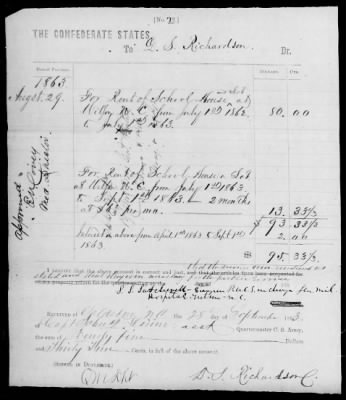 [No 22.]
THE CONFEDERATE STATES,
To D. S. Richardson, Dr.
DATE OF PURCHASE.
DOLLARS. CTS.
1863
August 29.
For Rent of School House & Lot at
Wilson N. C. from July 1st 1862
to July 1st 1863.
80. 00
For Rent of School House & Lot
at Wilson N. C. from July 1st 1863
to Sept 1st 1863. — 2 months
at pr. mo.
13. 33⅓
$ 93. 33⅓
Interest on above from April 1st 1863 to Sept 1st
1863.
2 00
$ 95. 33⅓
Approved
Med. Director
I CERTIFY that the above account is correct and just,
S. S. Satchwell Surgeon P.A.C.S. in charge Gen. Mil.
Hospital Wilson N. C.
RECEIVED at Wilson N.C. the 28 of September 1863,
of Capt John Quartermaster C. S. Army,
the sum of Ninety five
and Thirty Three Cents, in full of the above account.
(SIGNED IN DUPLICATE.)
D. S. Richardson